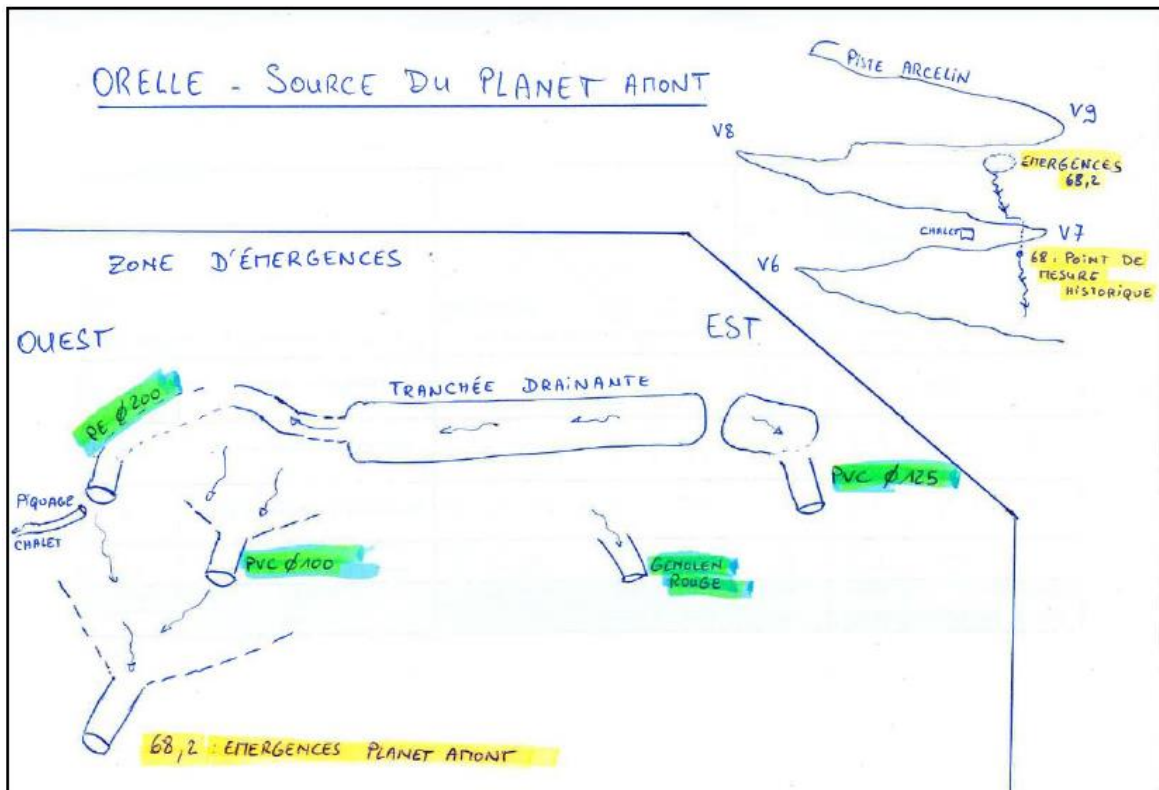 ORELLE - SOURCE DU PLANET AMONT
PISTE ARCELIN
V9
V8
EMERGENCES
68,2
CHALET
V7
V6
68. POINT DE
MESURE
HISTORIQUE
ZONE D'ÉMERGENCES :
OUEST
EST
TRANCHÉE DRAINANTE
PE Ø200
PVC Ø125
PIQUAGE
CHALET
PVC Ø100
GEMOLEN
ROUGE
68,2 : EMERGENCES PLANET AMONT